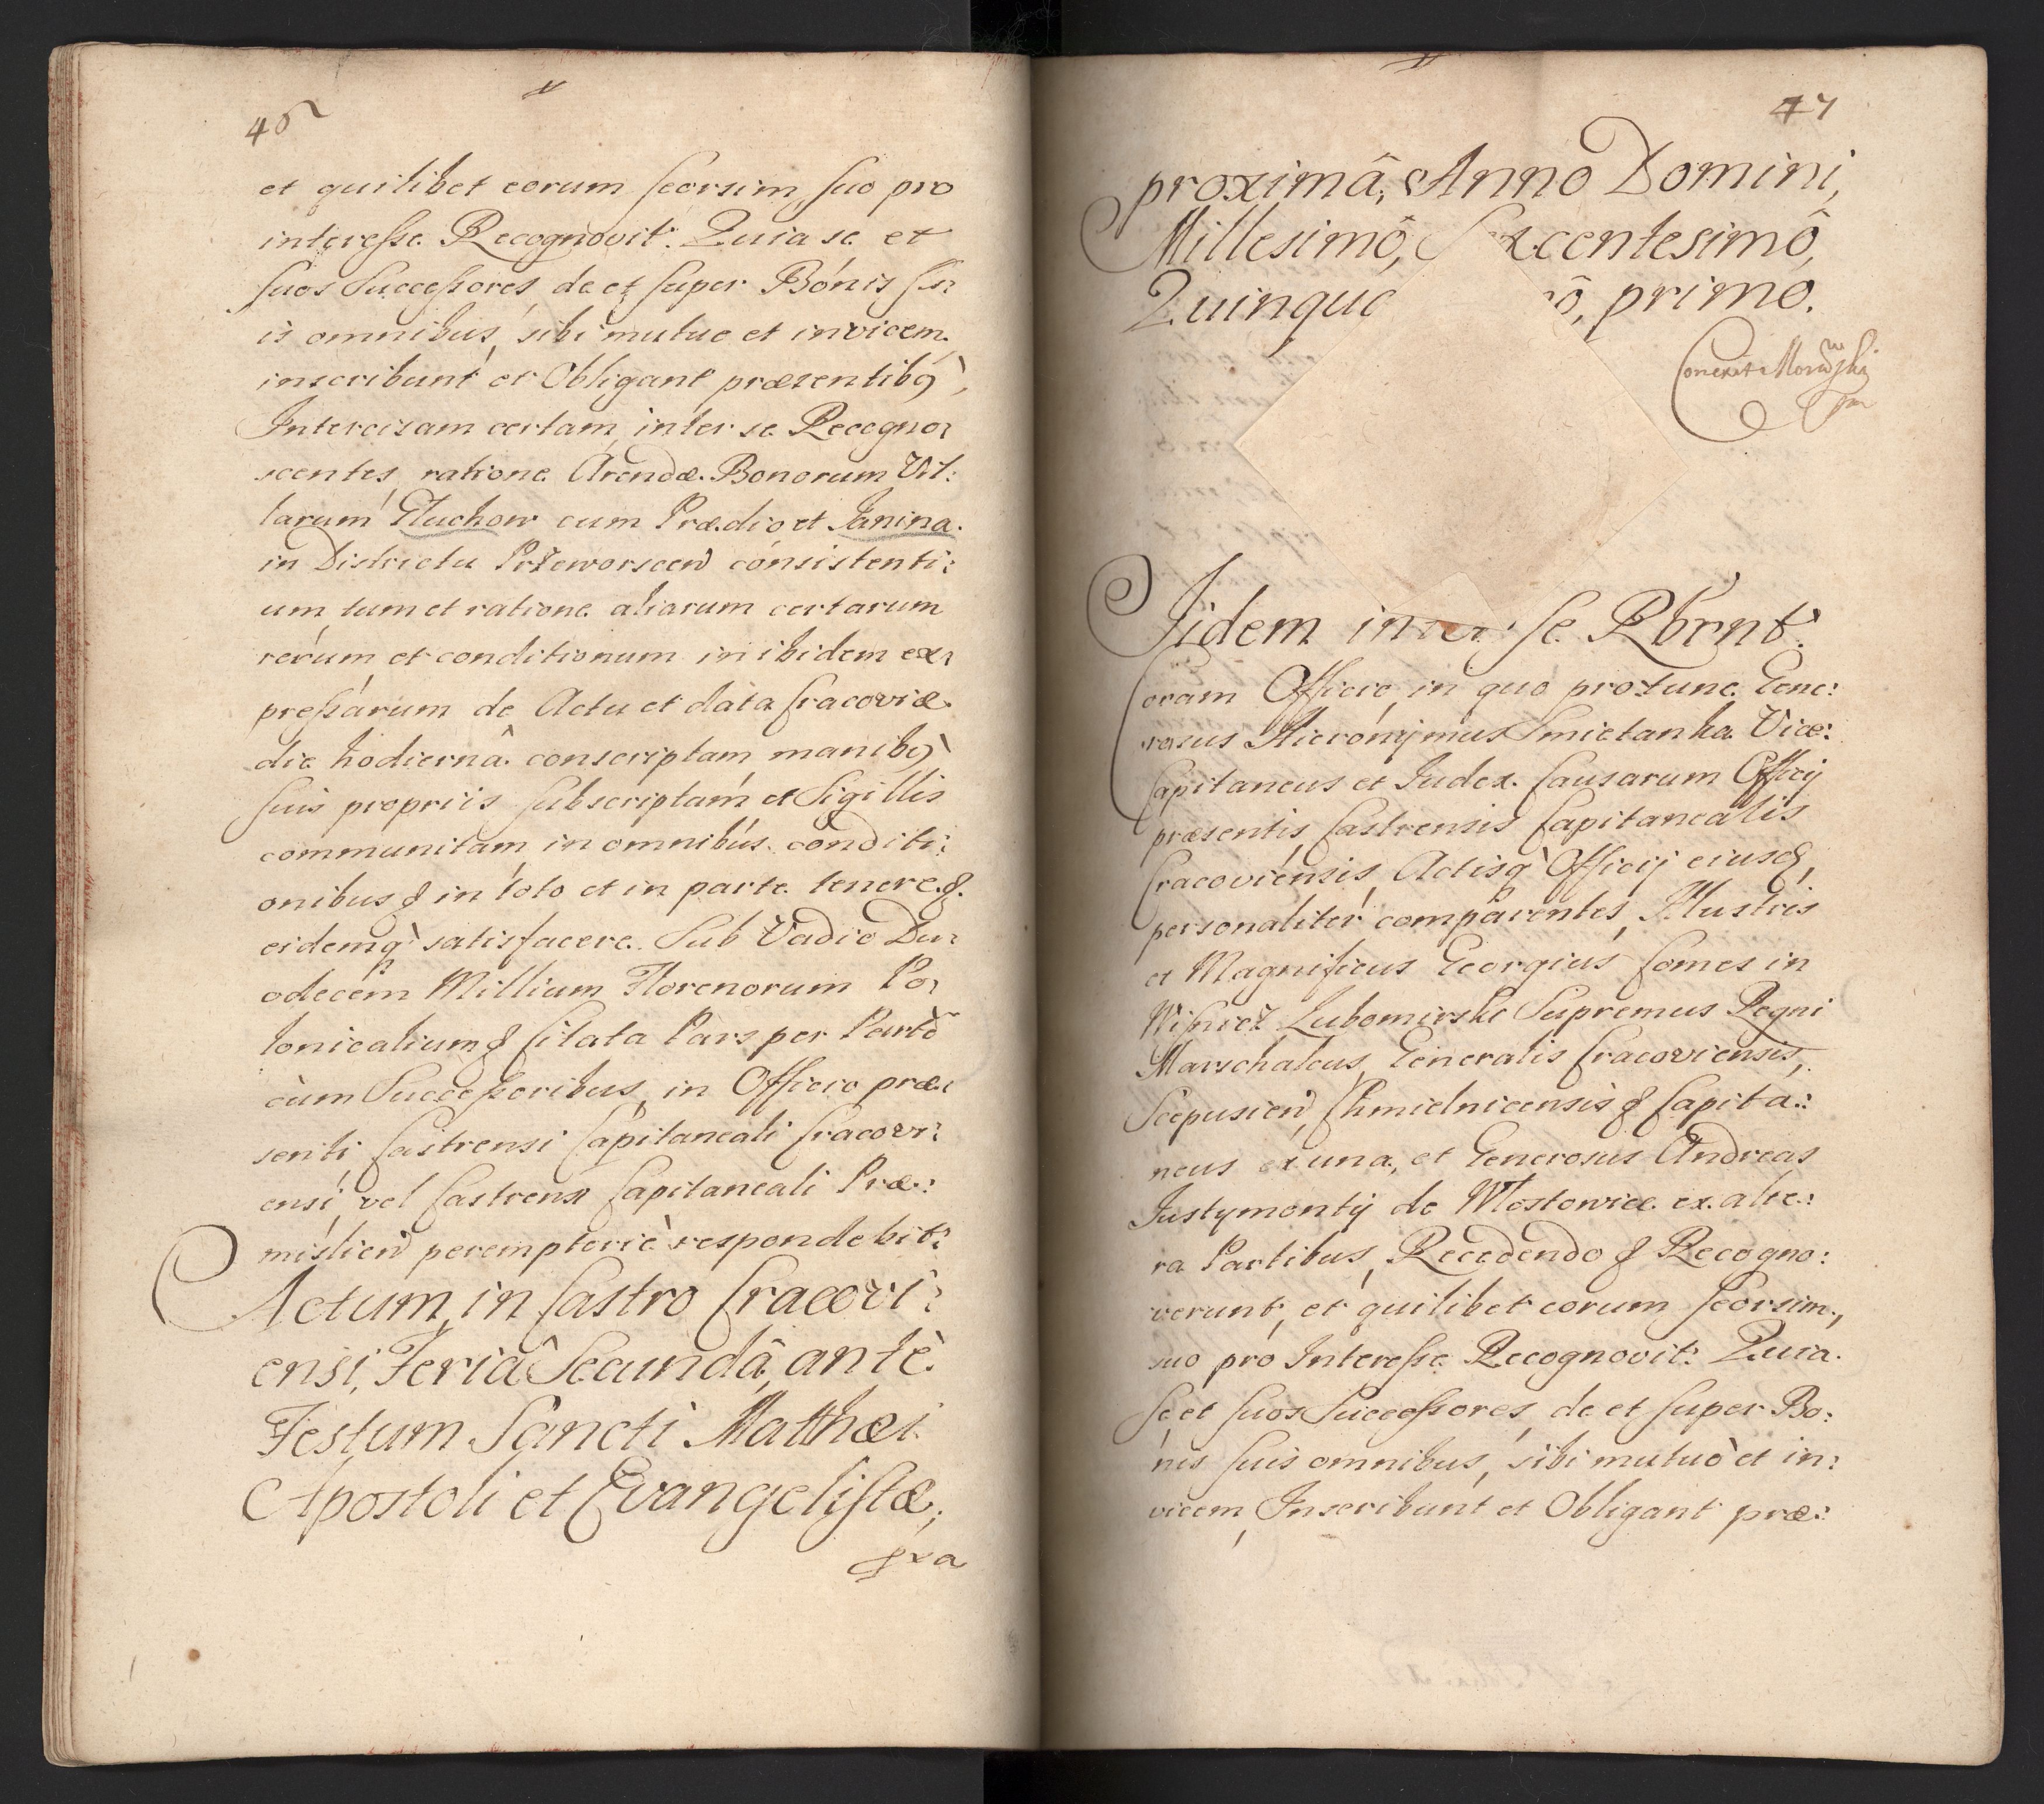 46
et quilibet eorum seorsim, suo pro
interesse Recognovit. Quia se et
suos Successores de et super Bonis su:
is omnibus, sibi mutuo et invicem
inscribunt et Obligant præsentibq,
Intercizam certam, inter se Recogno:
scentes, ratione Arendæ Bonorum Vil:
larum Gluchow cum Prædio et Janina
in Districtu Przeworscen consistenti:
um, tum et ratione aliarum certarum
rerum et conditionum inibidem ex:
pressarum de Actu et data Cracoviæ
die hodiernâ conscriptam, manibq
suis propriis subscriptam et Sigillis
communitam, in omnibus conditi:
onibus & in toto et in parte tenere &
eidemq satisfacere. Sub Vadio Du:
odecem Millium Florenorum Po:
lonicalium & Citata Pars per Partẽ
cum Successoribus, in Officio præ:
senti Castrensi Capitaneali Cracovi:
ensi, vel Castrensi Capitaneali Præ:
mislien peremptoriè respondebit:
Actum, in Castro Cracovi:
ensi, Feriâ Secundâ, antè
Festum Sancti Matthæi
Apostoli et Evangelistæ,
47
proximâ, Anno Domini,
Millesimô, centesimô,
primo.
Iidem inter se Rbrnt.
Coram Officio, in quo protunc Gene:
rosus Hieronymus Smietanka Vice:
Capitaneus et Judex Causarum Officij
præsentis, Castrensis Capitanealis
Cracoviensis, Actisq Officij eiusd,
personaliter comparentes, Illustris
et Magnificus Georgius Comes in
Wisnicz Lubomirski Supremus Regni
Marschalcus, Generalis Cracoviensis,
Scepusien, Chmielnicensis & Capita:
neus ex una, et Generosus Andreas
Justymontij de Wlostowice ex alte:
ra Partibus, Recedendo & Recogno:
verunt, et quilibet eorum seorsim,
suo pro Interesse Recognovit. Quia
se et suos Successores, de et super Bo:
nis suis omnibus, sibi mutuò et in:
vicem, Inscribunt et Obligant præ: